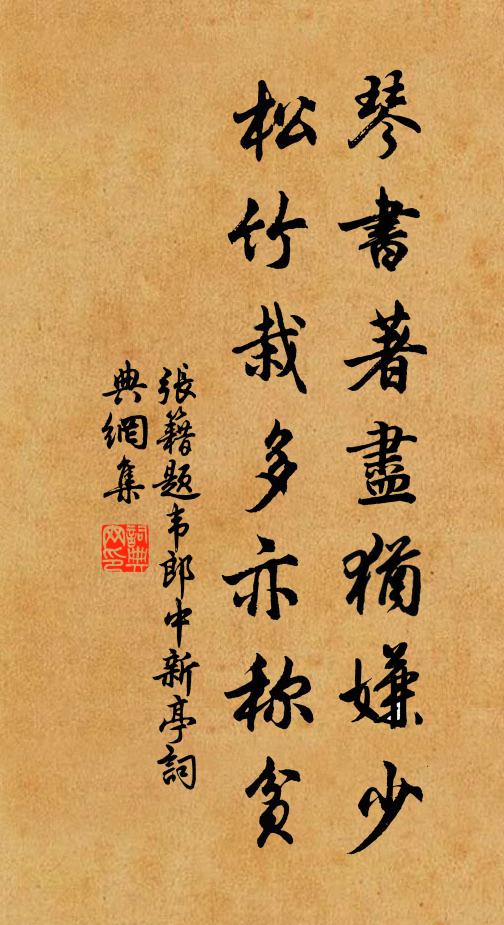 琴書著盡猶嫌少
松竹栽多亦称貧
張籍題韦郎中新亭詞
典網集
詞典网印